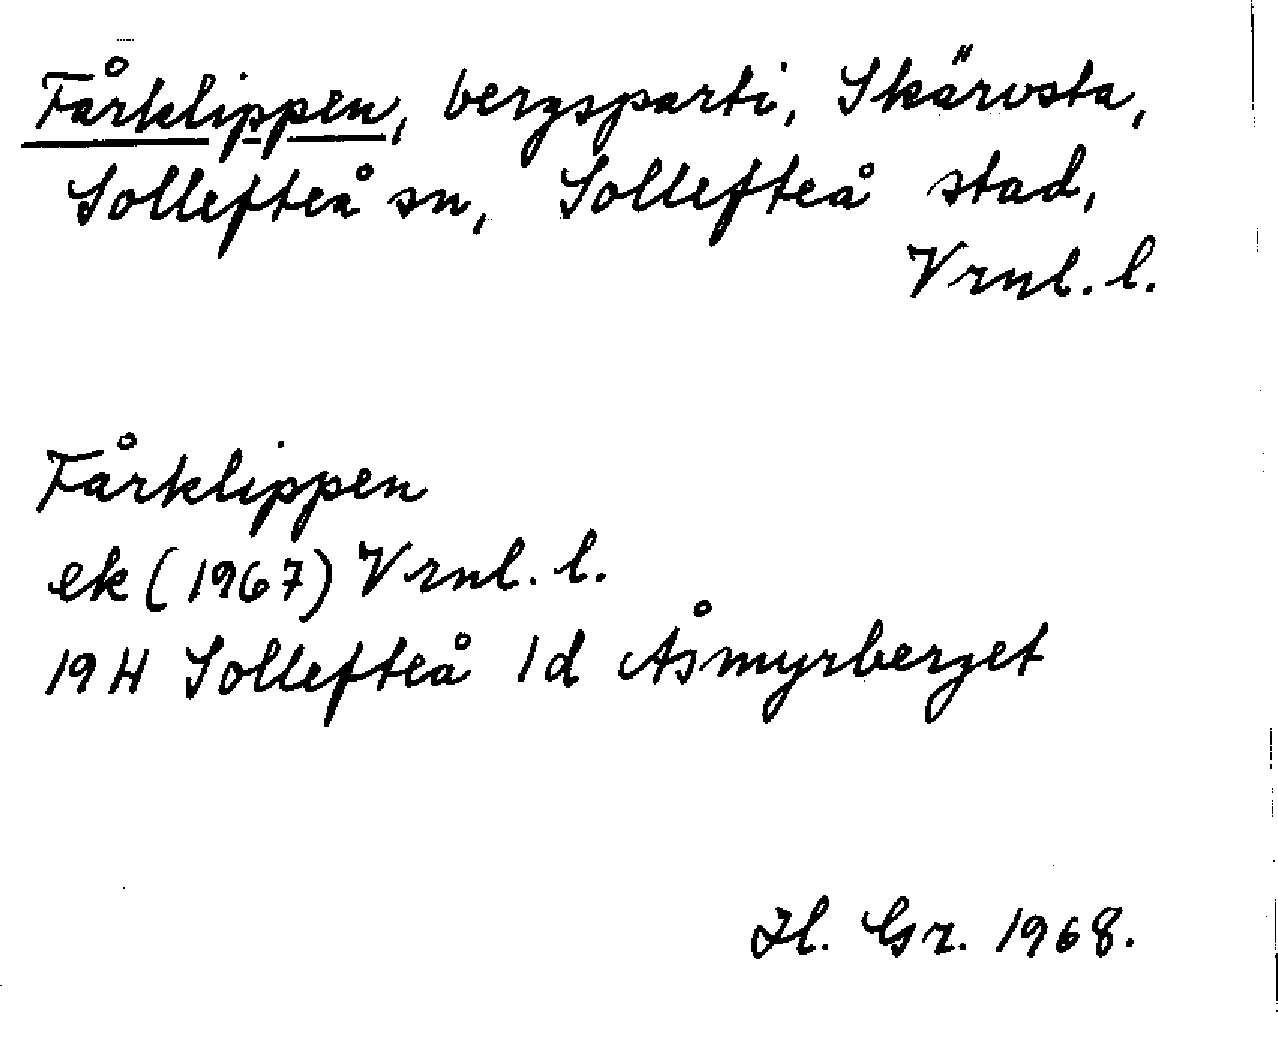 Fårklippen, bergsparti, Skärvsta,
Sollefteå sn, Sollefteå stad,
Vrnl. l.
Fårklippen
ek (1967) Vrnl. l.
19 H Sollefteå 1d Åsmyrberget
Gr. 1968.